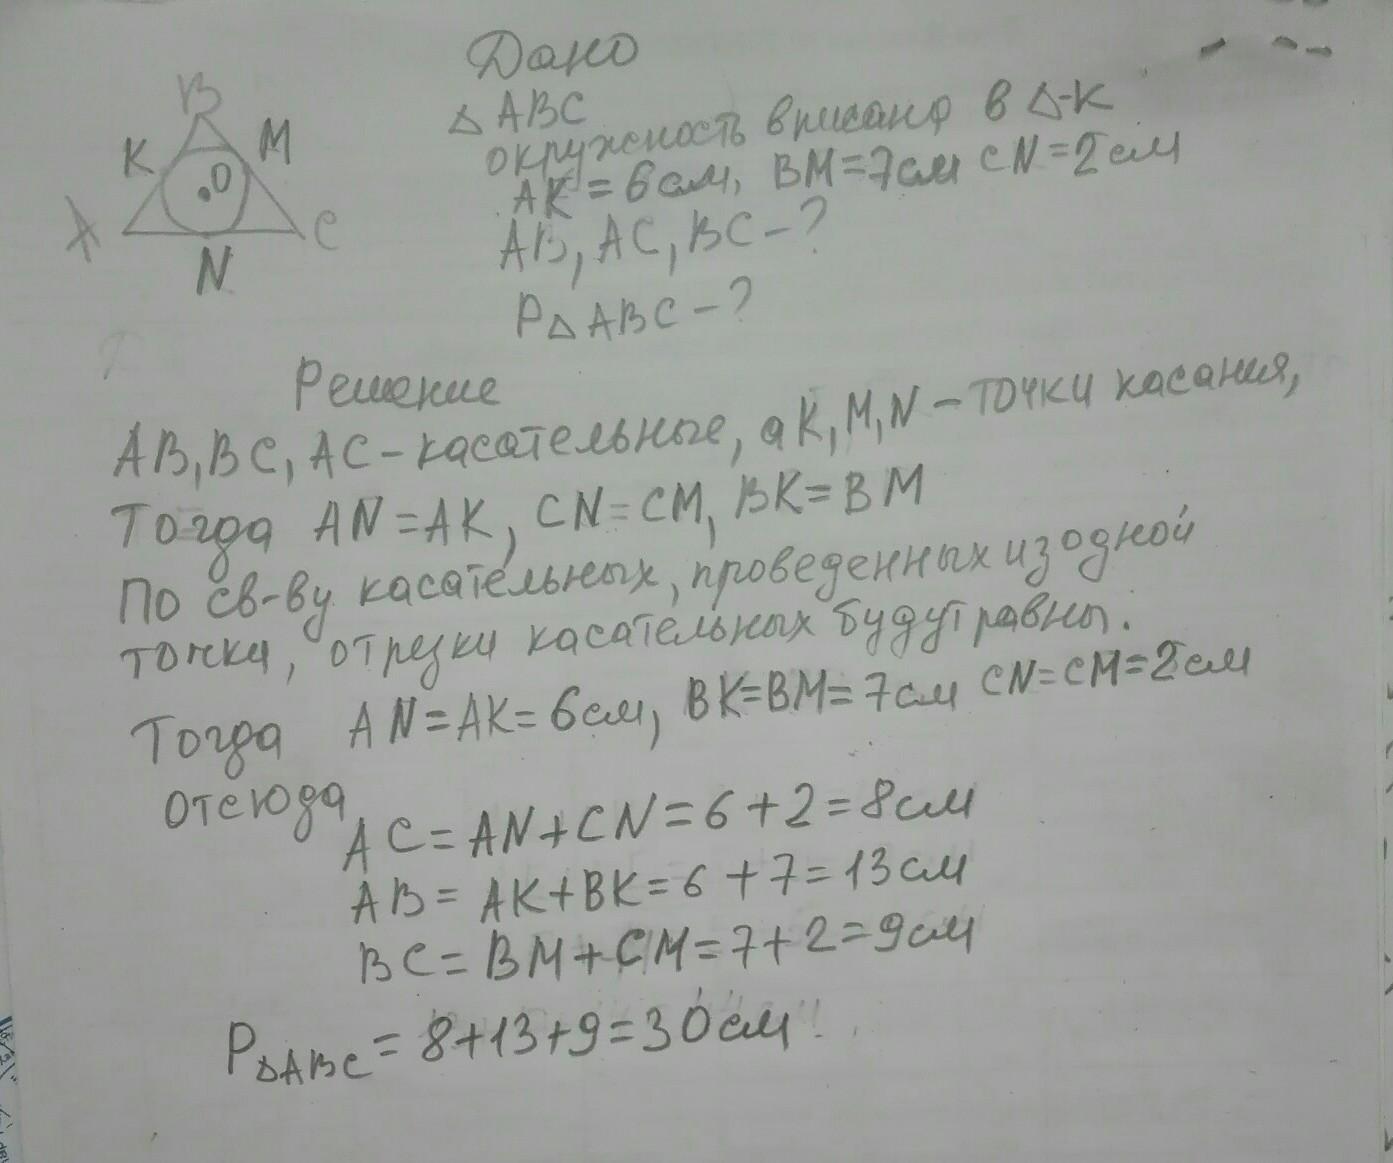 Дано
△ ABC
окружность вписана в △-к
AK = 6см, BM=7см CN=2см
AB, AC, BC-?
P△ABC-?
B
K M
O
A C
N
Решение
AB, BC, AC-касательные, а K, M, N-точки касания,
Тогда AN=AK, CN=CM, BK=BM
По св-ву касательных, проведенных из одной
точки, отрезки касательных будут равны.
Тогда AN=AK=6см, BK=BM=7см CN=CM=2см
Отсюда
AC=AN+CN=6+2=8см
AB= AK+BK=6+7=13см
BC=BM+CM=7+2=9см
P△ABC=8+13+9=30см